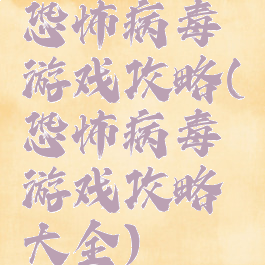 恐怖病毒
游戏攻略(
恐怖病毒
游戏攻略
大全)